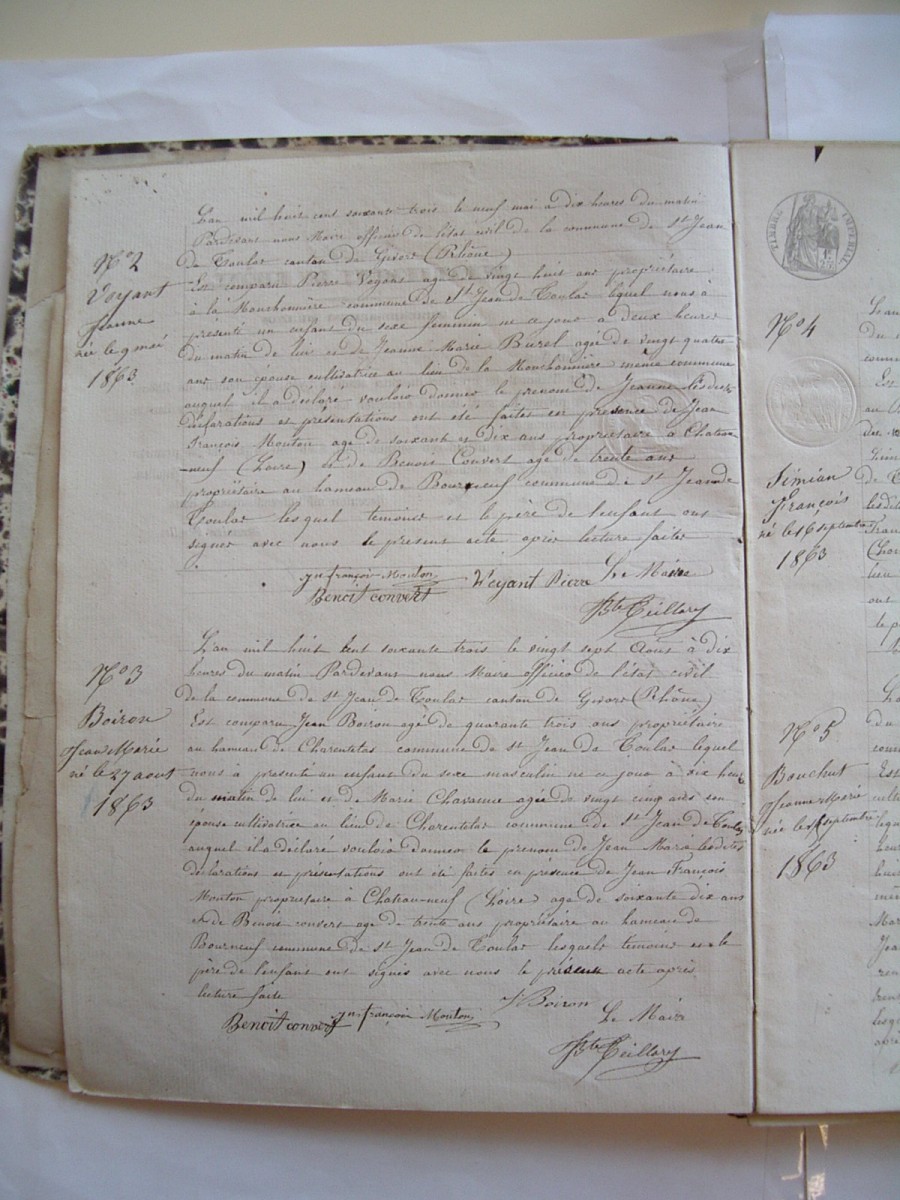 N° 2
Voyant
Jeanne
née le 9 mai
1863
L'an mil huit cent soixante trois le neuf mai à dix heures du matin
Pardevant nous Maire officier de l'état civil de la commune de St Jean
de Toulas canton de Givors (Rhône)
Est comparu Pierre Voyant agé de vingt huit ans propriétaire
à la Monchonnière commune de St Jean de Toulas lequel nous à
présenté un enfant du sexe feminin né ce jour à deux heures
du matin de lui et de Jeanne Marie Burel agée de vingt quatre
ans son épouse cultivatrice au lieu de la Monchonnière même commune
auquel il a déclaré vouloir donner le prenom de Jeanne lesdites
déclarations et présentations ont été faites en présence de Jean
François Mouton agé de soixante et dix ans propriétaire à Chateau
neuf (Loire) et de Benoit Convert agé de trente ans
propriétaire au hameau de Bourneuf commune de St Jean de
Toulas lesquel temoins et le père de l'enfant ont
signer avec nous le présent acte après lecture faite
Jn françois Mouton Veyant Pierre Le Maire
Benoit convert
Bte Teillary
N° 3
Boiron
Jean Marie
né le 27 aout
1863
L'an mil huit cent soixante trois le vingt sept Aout à dix
heures du matin Pardevant nous Maire officier de l'état civil
de la commune de St Jean de Toulas canton de Givors (Rhône)
Est comparu Jean Boiron agé de quarante trois ans propriétaire
au hameau de Charentelas commune de St Jean de Toulas lequel
nous à présenté un enfant du sexe masculin né ce jour à six heures
du matin de lui et de Marie Chavanne agée de vingt cinq ans son
épouse cultivatrice au lieu de Charentelas commune de St Jean de Toulas
auquel il a déclaré vouloir donner le prenom de Jean Marie lesdites
déclarations et présentations ont été faites en présence de Jean François
Mouton propriétaire à Chateau-neuf (Loire) agé de soixante dix ans
et de Benoit convert agé de trente ans propriétaire au hameau de
Bourneuf commune de St Jean de Toulas lesquels temoins et le
père de l'enfant ont signés avec nous le présent acte après
lecture faite
J Boiron
Benoit convert Jn françois Mouton Le Maire
Bte Teillary
TIMBRE IMPÉRIAL
N° 4
Simian
François
né le 16 septembre
1863
N° 5
Bouchut
Jeanne Marie
née le septembre
1863